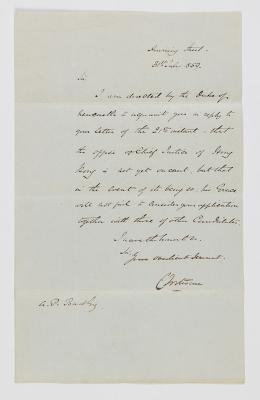 Downing Street
30th July 1853.
Sir
I am directed by the Duke of
Newcastle to acquaint you in reply to
your letter of the 21st instant - that
the office of Chief Justice of Hong
Kong is not yet vacant, but that
in the event of its being so, his Grace
will not fail to consider your application
together with those of other Candidates.
I have the honor &c
Sir,
Your obedient Servant